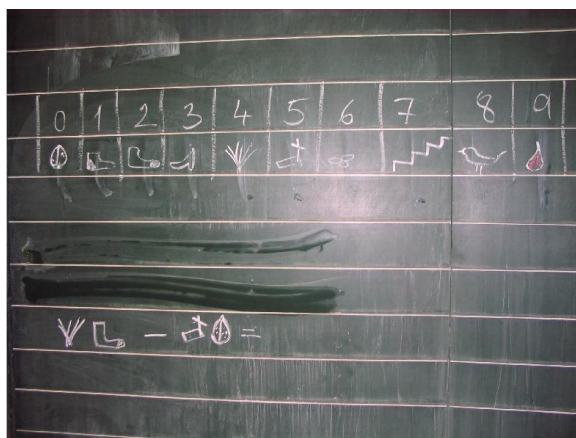 0 1 2 3 4 5 6 7 8 9
- =